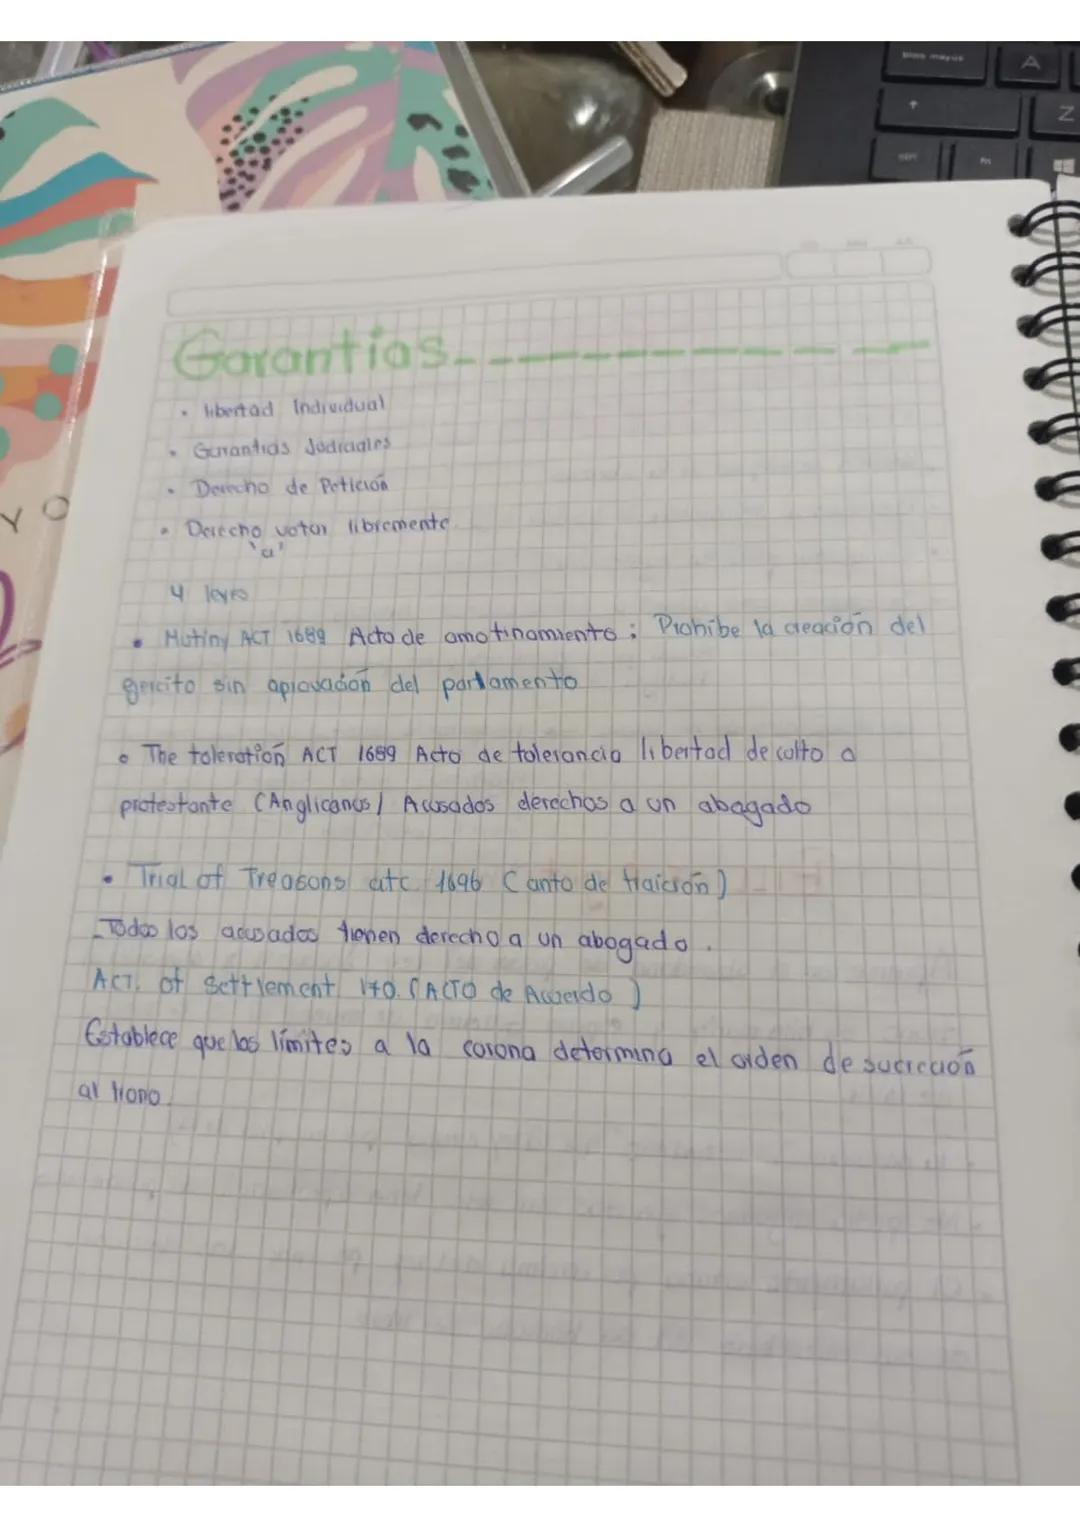 bloq mayus
A
Z
fn
Y O
Garantias
• libertad Individual
• Garantias Judiciales
• Derecho de Petición
• Derecho votar libremente
"a"
4 leyes
• Mutiny ACT 1689 Acto de amotinamiento : Prohibe la creación del
ejercito sin aprovación del parlamento
• The toleration ACT 1689 Acto de tolerancia libertad de culto a
protestante (Anglicanos) Acusados derechos a un abagado
• Trial of Treasons atc 1696 (anto de traición)
_Todos los acusados tienen derecho a un abogado.
ACT. of Settlement 170. (ACTO de Acuerdo )
Establece que los límites a la corona determina el orden de sucreción
al trono.